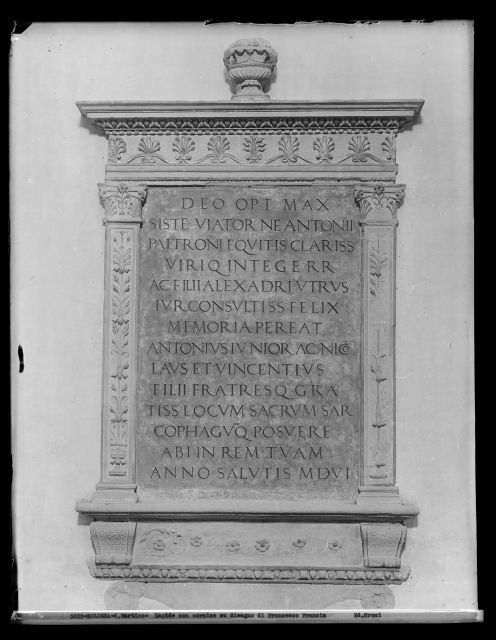 DEO OPT MAX
SISTE VIATOR NE ANTONII
PALTRONI EQVITIS CLARISS
VIRIQ INTEGERR
AC FILII ALEXADRI VTRVS
IVRCONSVLTISS FELIX
MEMORIA PEREAT
ANTONIVS IVNIOR AC NICO
LAVS ET VINCENTIVS
FILII FRATRESQ GRA
TISS LOCVM SACRVM SAR
COPHAGVQ POSVERE
ABI IN REM TVAM
ANNO SALVTIS MDVI
5015-BOLOGNA-S.Martino- Lapide con cornice su disegno di Francesco Francia Ed.Croci